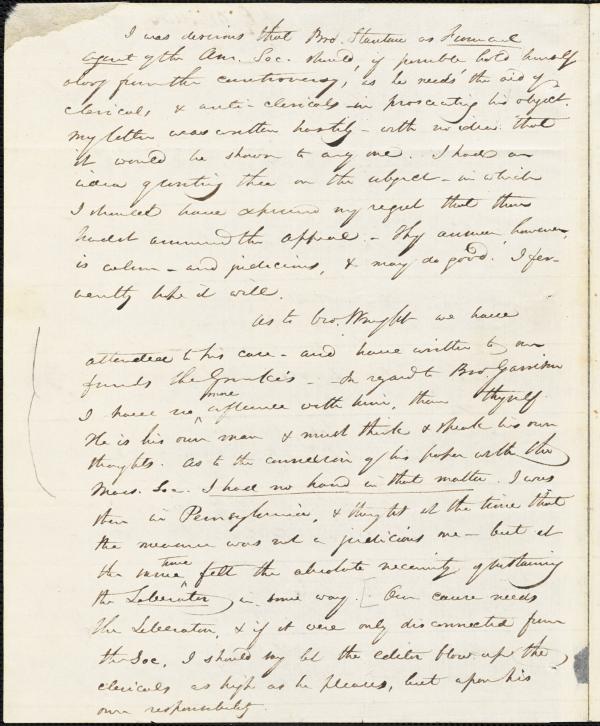 I was desirous that Bro. Stanton as Financial
agent of the Am. Soc. should, if possible hold himself
aloof from the controversy, as he needs the aid of
clericals, & anti-clericals in prosecuting his object.
My letter was written hastily - with no idea that
it would be shown to any one. I had an
idea of writing thee on the subject - in which
I should have expressed my regret that thou
hadst answered the appeal. - Thy answer, however,
is calm - and judicious, & may do good. I fer-
vently hope it will.
As to bro. Wright we have
attended to his case - and have written to our
friends the Grimkes - In regard to Bro Garrison
I have no more influence with him, than thyself.
He is his own man & must think & speak his own
thoughts. As to the connexion of his paper with the
Mass. Soc. I had no hand in that matter. I was
then in Pennsylvania, & thought at the time that
the measure was not a judicious one - but at
the same time felt the absolute necessity of sustaining
the Liberator in some way. [ Our cause needs
the Liberator, & if it were only disconnected from
the Soc. I should say let the editor blow up the
clericals as high as he pleases, but upon his
own responsibility.